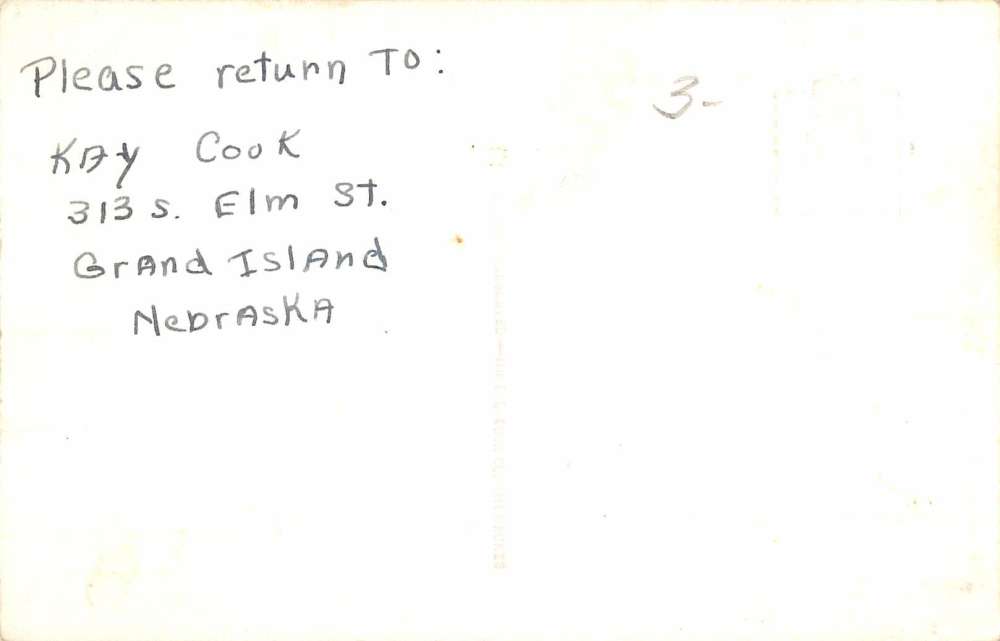 Please return To:
KAy Cook
313 S. Elm St.
GrAnd IslAnd
NebrAskA
3-